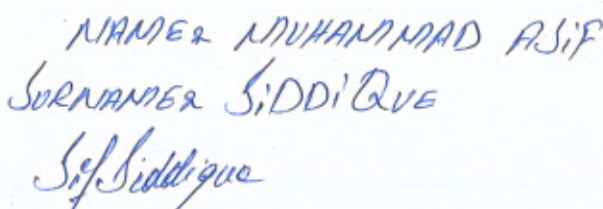 NAMER MUHAMMAD ASIF
SURNAMER SIDDIQUE
Sif Siddique